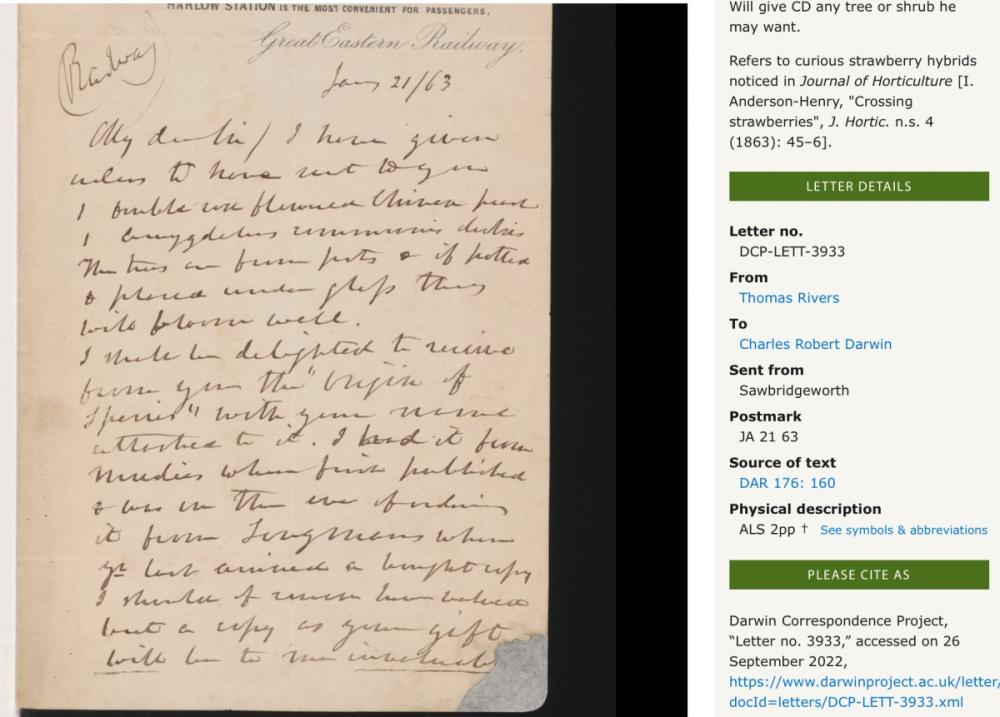 HARLOW STATION IS THE MOST CONVENIENT FOR PASSENGERS.
Great Eastern Railway.
Railway
Jany 21/63
My dear Sir/ I have given
orders to have sent to you
1 double rose flowered Chinese peach
1 amygdalus communis dulcis
The trees are from pots & if potted
& placed under glass they
will bloom well.
I shall be delighted to receive
from you the "Origin of
Species" with your name
attached to it. I had it from
Mudies when first published
& was on the eve of ordering
it from Longmans when
yr last arrived a bought copy
I should of course have valued
but a copy as your gift
will be to me invaluable
Will give CD any tree or shrub he
may want.
Refers to curious strawberry hybrids
noticed in Journal of Horticulture [I.
Anderson-Henry, "Crossing
strawberries", J. Hortic. n.s. 4
(1863): 45–6].
LETTER DETAILS
Letter no.
DCP-LETT-3933
From
Thomas Rivers
To
Charles Robert Darwin
Sent from
Sawbridgeworth
Postmark
JA 21 63
Source of text
DAR 176: 160
Physical description
ALS 2pp † See symbols & abbreviations
PLEASE CITE AS
Darwin Correspondence Project,
“Letter no. 3933,” accessed on 26
September 2022,
https://www.darwinproject.ac.uk/letter/
docId=letters/DCP-LETT-3933.xml